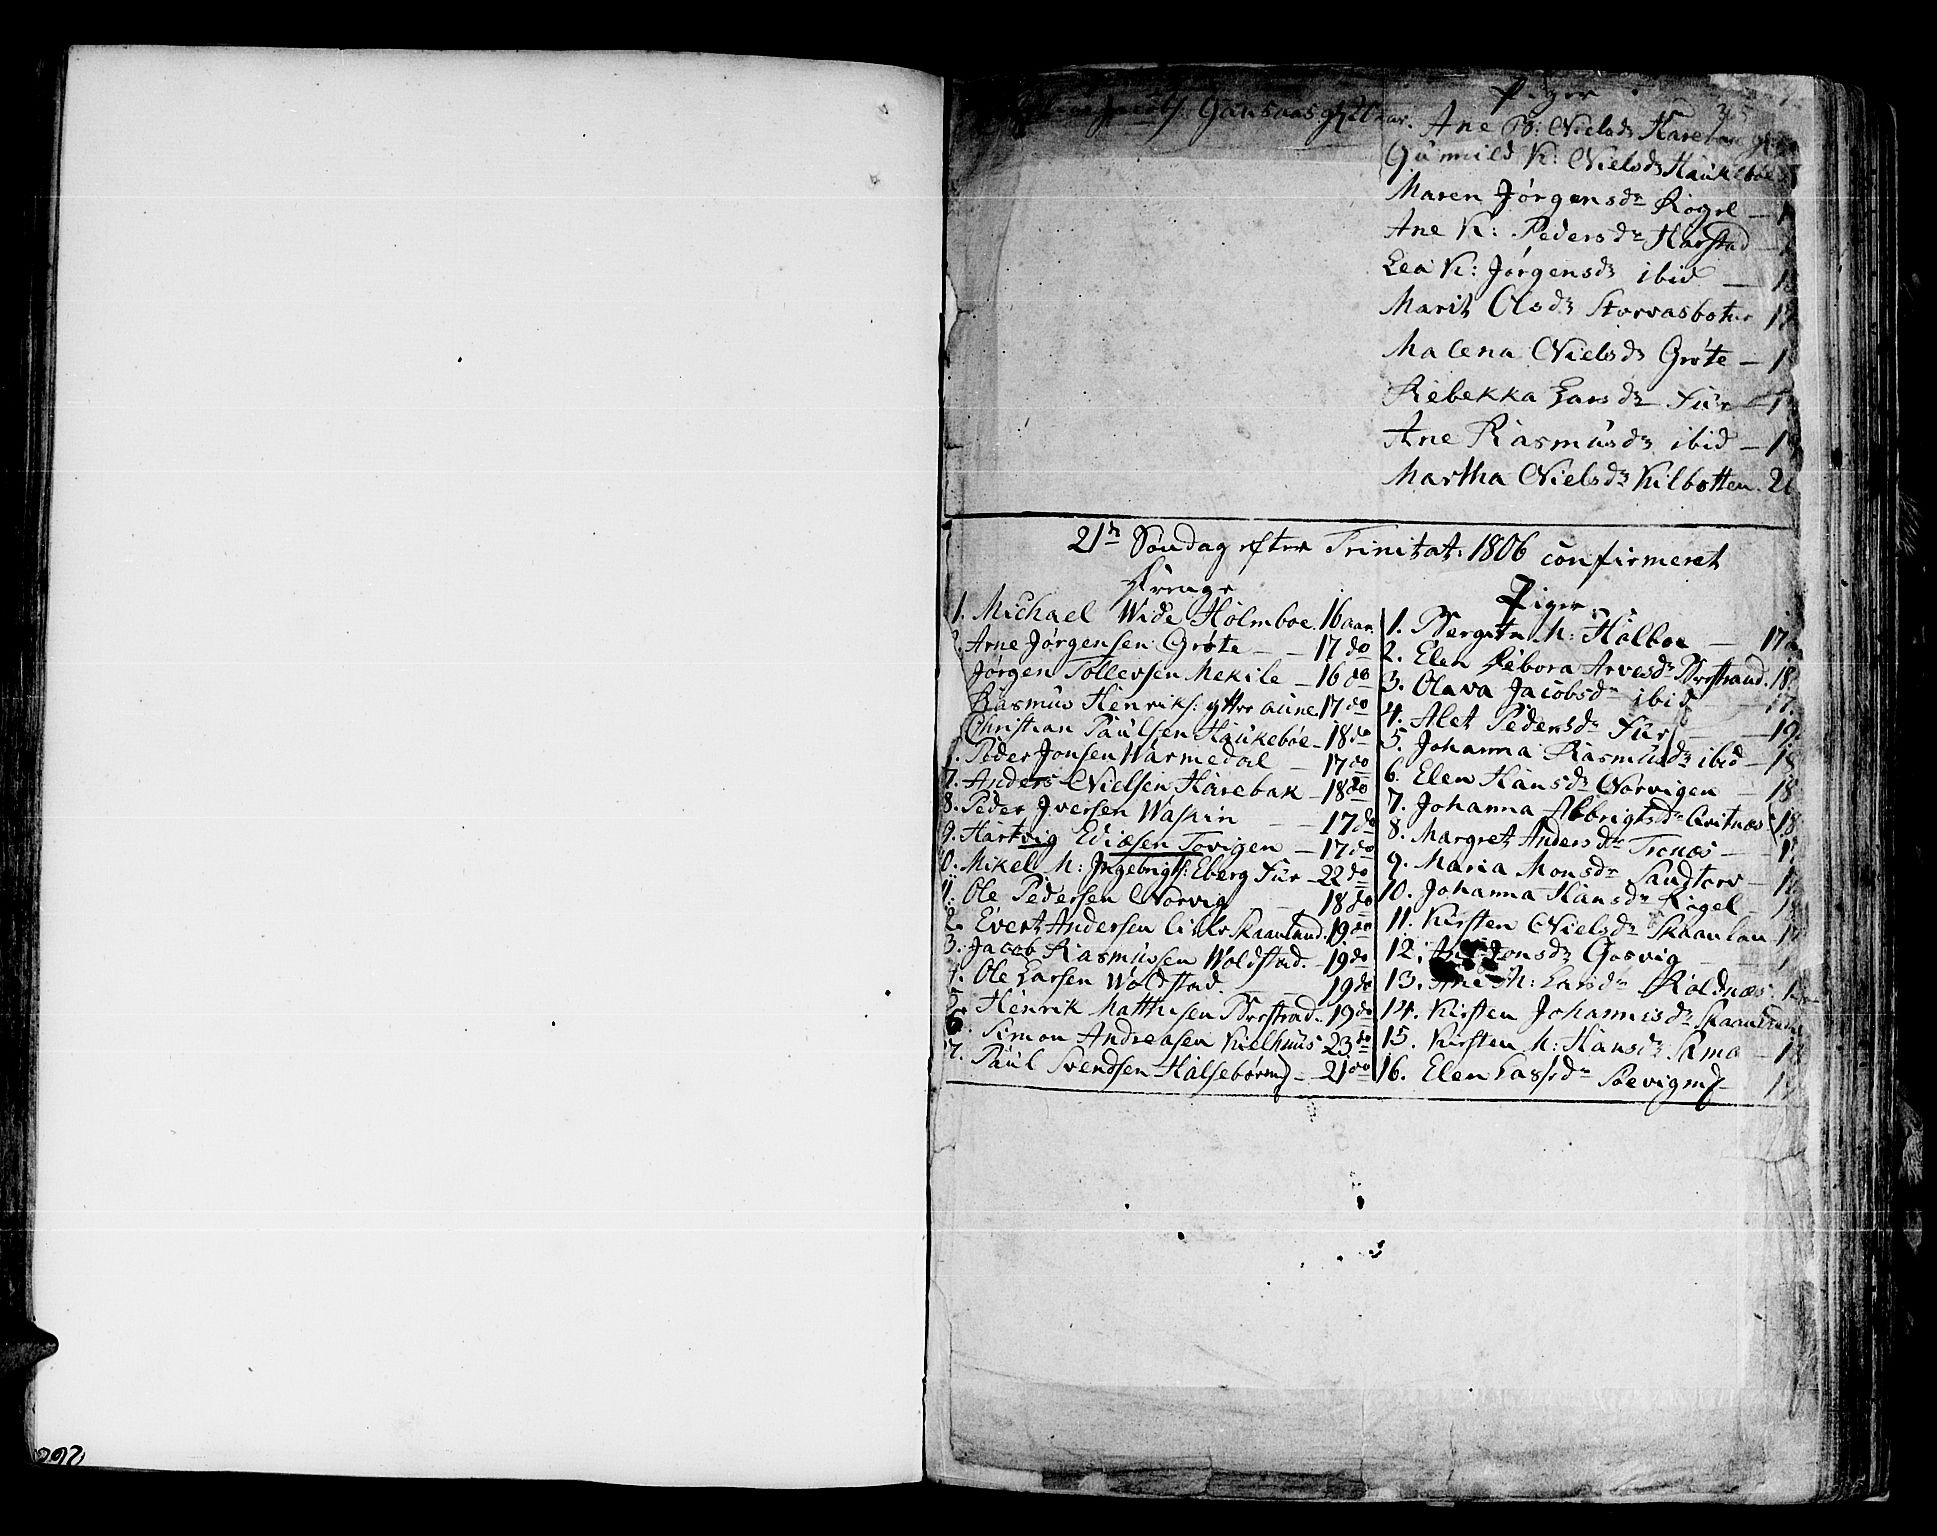 Jacobs. Gausaas
Piger
Ane B: Nielsdr Harebak
Gunnild K: Nielsdr Haukebøe
Maren Jørgensdr Rogel —
Ane K: Pedersdr Harstad —
Lea K: Jørgensdr ibid —
Marit Olsdr Storvasbotn
Malena Nielsdr Grøte —
Rebekka Larsdr Fur —
Ane Rasmusdr ibid —
Martha Nielsdr Kilbotten.
21de Søndag efter Trinitat: 1806 confirmeret
Drenge
1. Michael Wide Holmboe. 16 aar.
Arne Jørgensen Grøte — 17 do
Jørgen Tollevsen Mekile — 16 do
Rasmus Henriks: yttre aune 17 do
Christian Paulsen Haukebøe — 18 do
Peder Jonsen Warmedal — 17 do
7. Anders Nielsen Harebak — 18 do
8. Peder Iversen Waskin — 17 do
9. Hartvig Ediasen Tovigen — 17 do
0. Mikel M: Ingebrigts: Eberg Fur — 22 do
11. Ole Pedersen Norvig — 18 do
2. Evert Andersen Lille Skaanland. 19 do
3. Jacob Rasmussen Woldstad. — 19 do
4. Ole Larsen Woldstad. — 19 do
5. Henrik Matthisen Breistrad. 19 do
6. Simon Andreasen Kielhuus 23 do
7. Paul Svendsen Halsebøen — 21 do
Piger
1. Bergitta M: Halboe — 17
2. Elen Debora Arvesdr Breistrand. 18
3. Olava Jacobsdr ibid — 17.
4. Alet Pedersdr Fur — 19.
5. Johanna Rasmusdr ibid — 18
6. Elen Hansdr Norvigen — 18
7. Johanna Albrigtsdr Qvitnæs 18
8. Margret Andersdr Tronæs —
9. Maria Monsdr Sandtorv —
10. Johanna Hansdr Rogel —
11. Kirsten Nielsdr Skaanlan —
12. Jonsdr Gosvig —
13. Ane M: Larsdr Roldnæs
14. Kirsten Johannisdr Skaanland
15. Kirsten M: Hansdr Rama —
16. Elen Lassesdr Soevigen —